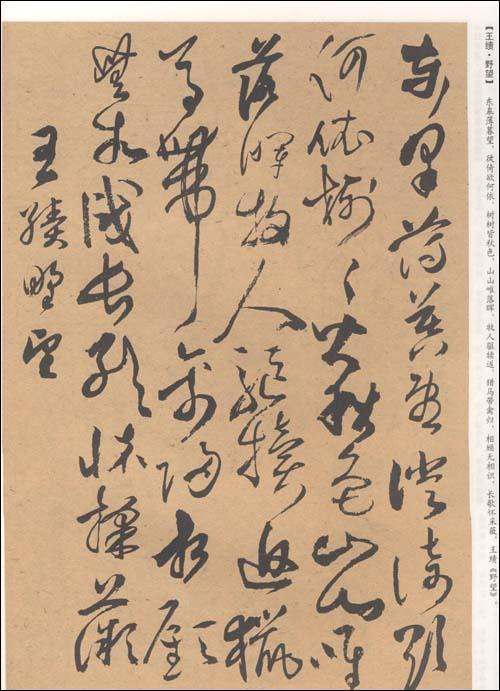 【王绩·野望】 东皋薄暮望，徙倚欲何依，树树皆秋色，山山唯落晖，牧人驱犊返，猎马带禽归，相顾无相识，长歌怀采薇。王绩《野望》
東皋薄暮望徙倚欲
何依樹々皆秋色山々唯
落暉牧人驅犢返獵
馬帶禽歸相顧
無相識長歌懷採薇
王績野望